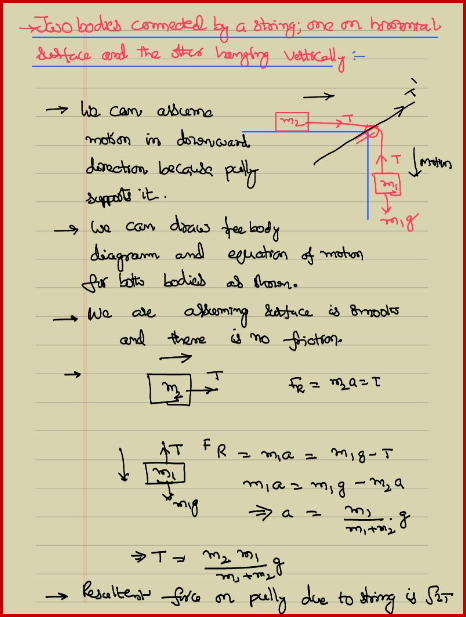 → Two bodies connected by a string; one on horizontal
surface and the other hanging vertically :-
→ We can assume
motion in downward
direction because pully
supports it.
m₂ → T
T
motion
m₁
m₁g
→ We can draw free body
diagram and equation of motion
for both bodies as shown.
→ We are assuming surface is smooth
and there is no friction.
→ m₂ T F_R = m₂a = T
T F_R = m₁a = m₁g - T
m₁
m₁g
m₁a = m₁g - m₂a
⇒ a = m₁/(m₁+m₂) g
⇒ T = m₂m₁/(m₁+m₂) g
→ Resultent force on pully due to string is √2T